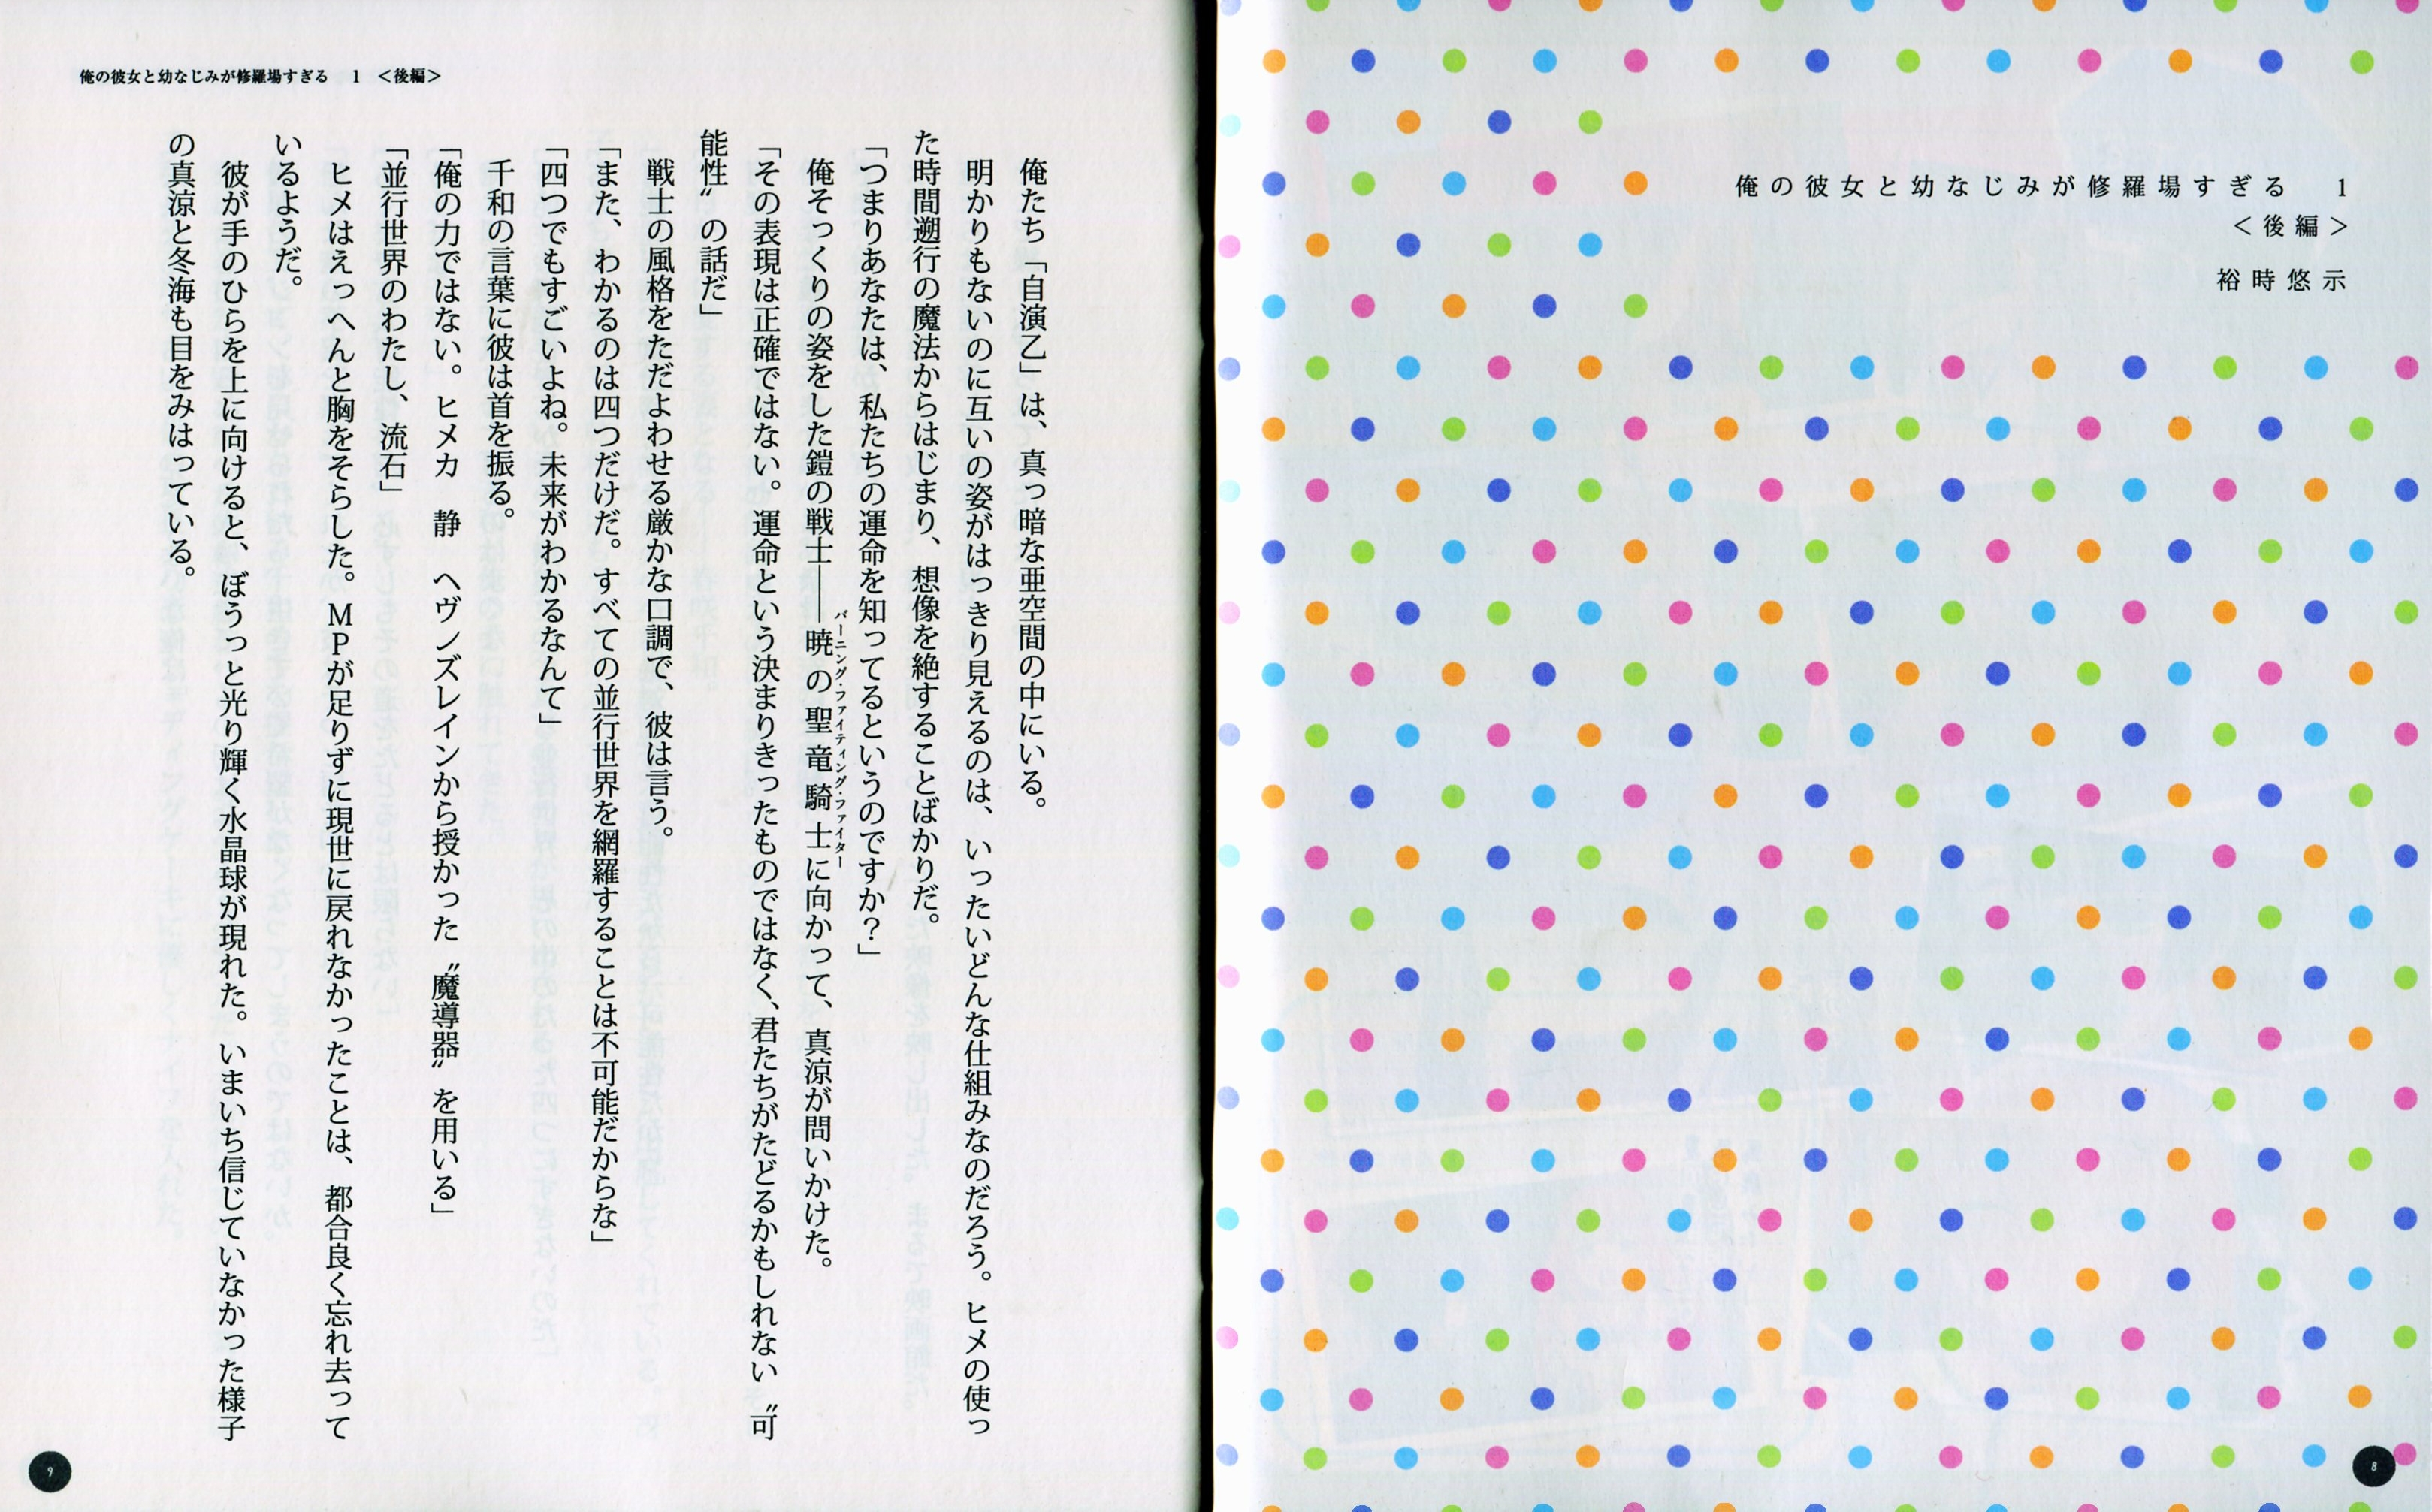 俺の彼女と幼なじみが修羅場すぎる　1
＜後編＞
裕時悠示
8
俺の彼女と幼なじみが修羅場すぎる　1　＜後編＞
　俺たち「自演乙」は、真っ暗な亜空間の中にいる。
　明かりもないのに互いの姿がはっきり見えるのは、いったいどんな仕組みなのだろう。ヒメの使っ
た時間遡行の魔法からはじまり、想像を絶することばかりだ。
「つまりあなたは、私たちの運命を知ってるというのですか？」
　俺そっくりの姿をした鎧の戦士――暁の聖竜騎士に向かって、真涼が問いかけた。
バーニング・ファイティング・ファイター
「その表現は正確ではない。運命という決まりきったものではなく、君たちがたどるかもしれない〝可
能性〟の話だ」
　戦士の風格をただよわせる厳かな口調で、彼は言う。
「また、わかるのは四つだけだ。すべての並行世界を網羅することは不可能だからな」
「四つでもすごいよね。未来がわかるなんて」
　千和の言葉に彼は首を振る。
「俺の力ではない。ヒメカ　静　ヘヴンズレインから授かった〝魔導器〟を用いる」
「並行世界のわたし、流石」
　ヒメはえっへんと胸をそらした。MPが足りずに現世に戻れなかったことは、都合良く忘れ去って
いるようだ。
　彼が手のひらを上に向けると、ぼうっと光り輝く水晶球が現れた。いまいち信じていなかった様子
の真涼と冬海も目をみはっている。
9